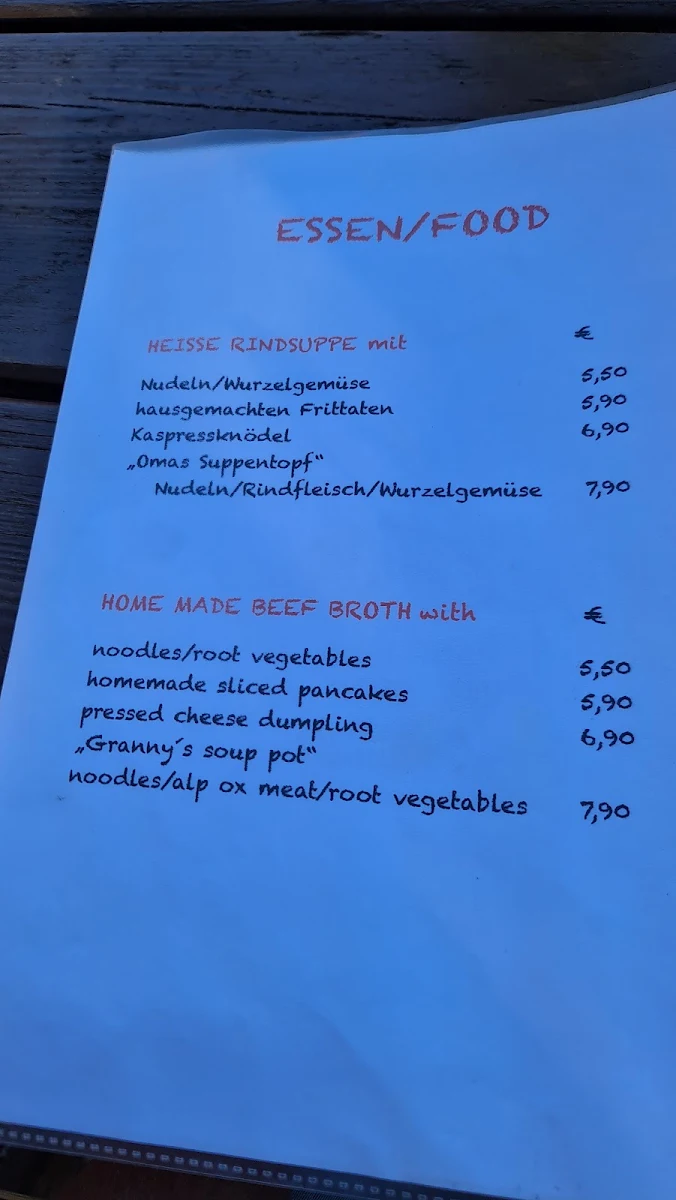 ESSEN/FOOD
HEISSE RINDSUPPE mit €
Nudeln/Wurzelgemüse 5,50
hausgemachten Frittaten 5,90
Kaspressknödel 6,90
„Omas Suppentopf“
Nudeln/Rindfleisch/Wurzelgemüse 7,90
HOME MADE BEEF BROTH with €
noodles/root vegetables 5,50
homemade sliced pancakes 5,90
pressed cheese dumpling 6,90
„Granny´s soup pot“
noodles/alp ox meat/root vegetables 7,90